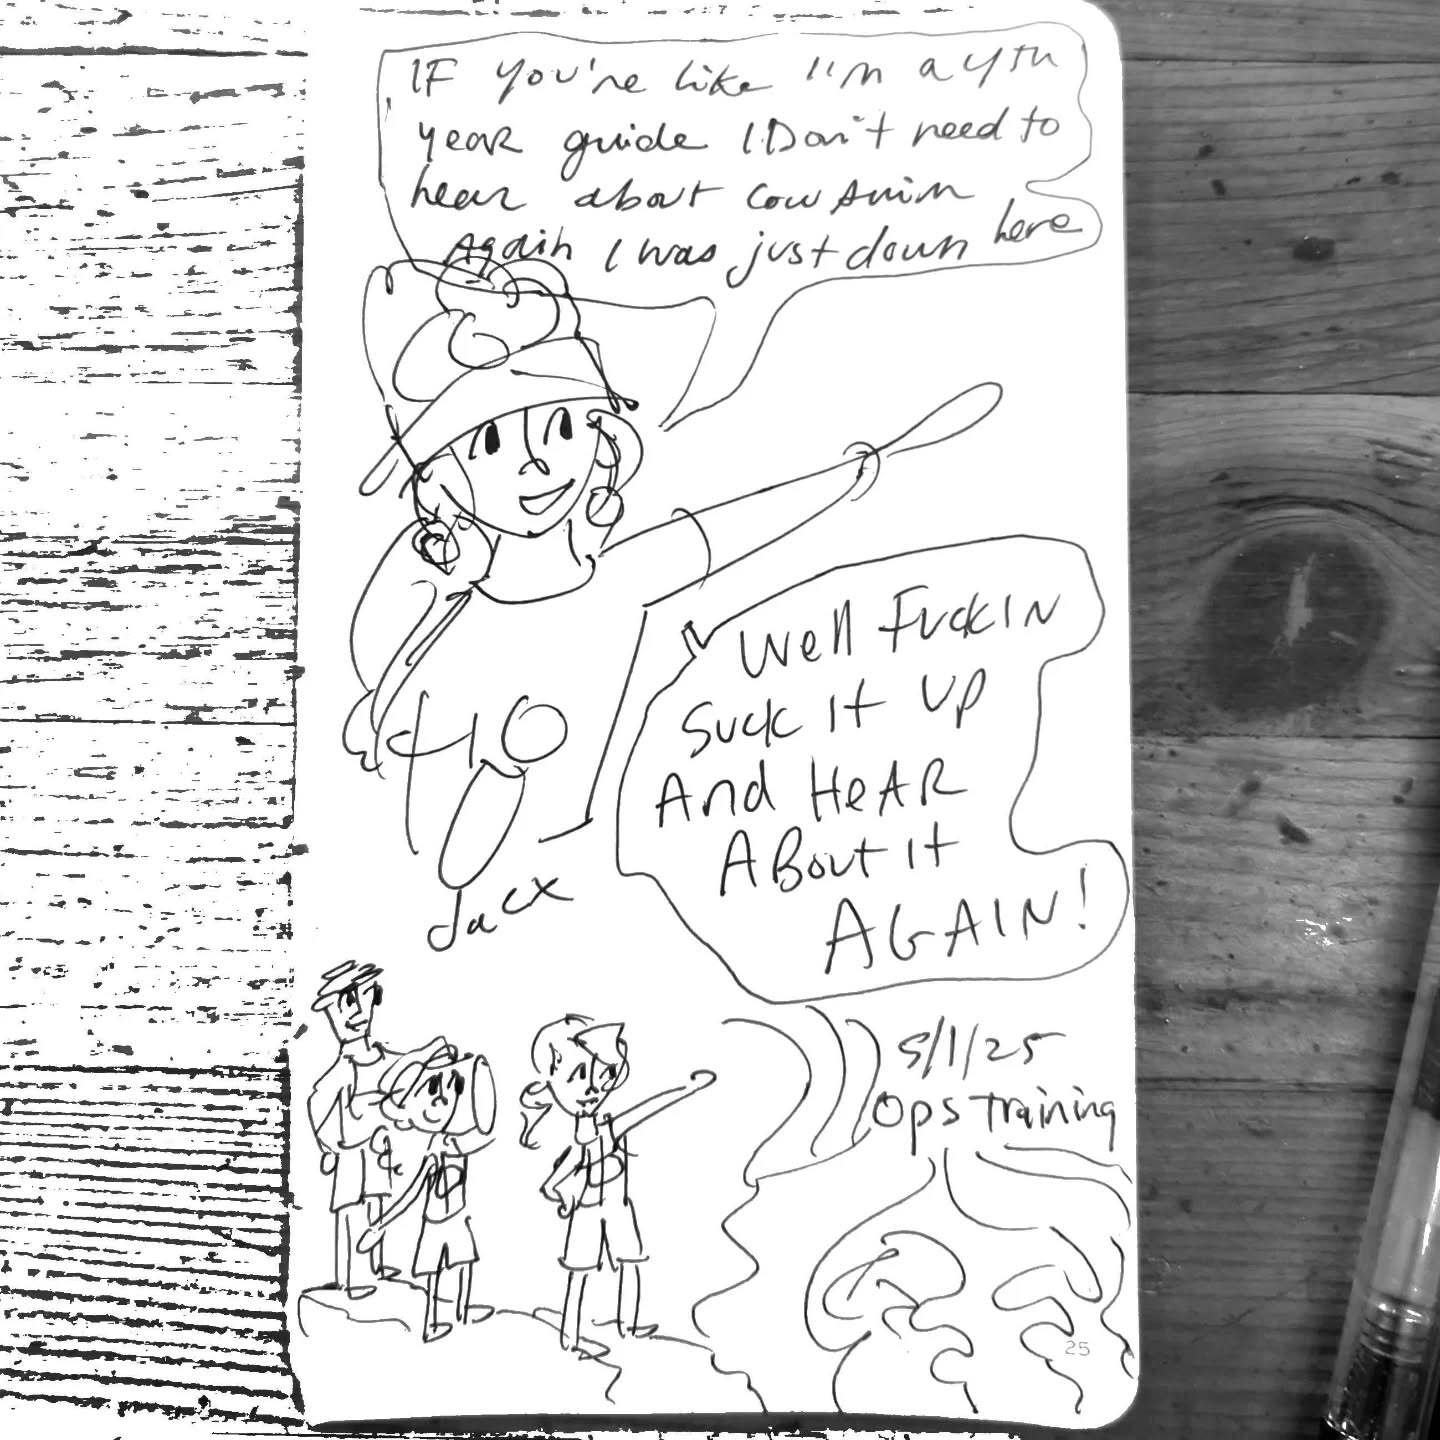 IF you're like I'm a 4th
year guide I Don't need to
hear about cow swim
Again I was just down here
Well FuckIN
Suck It Up
And HeAR
ABout It
AGAIN!
Jack
5/1/25
Ops training
25